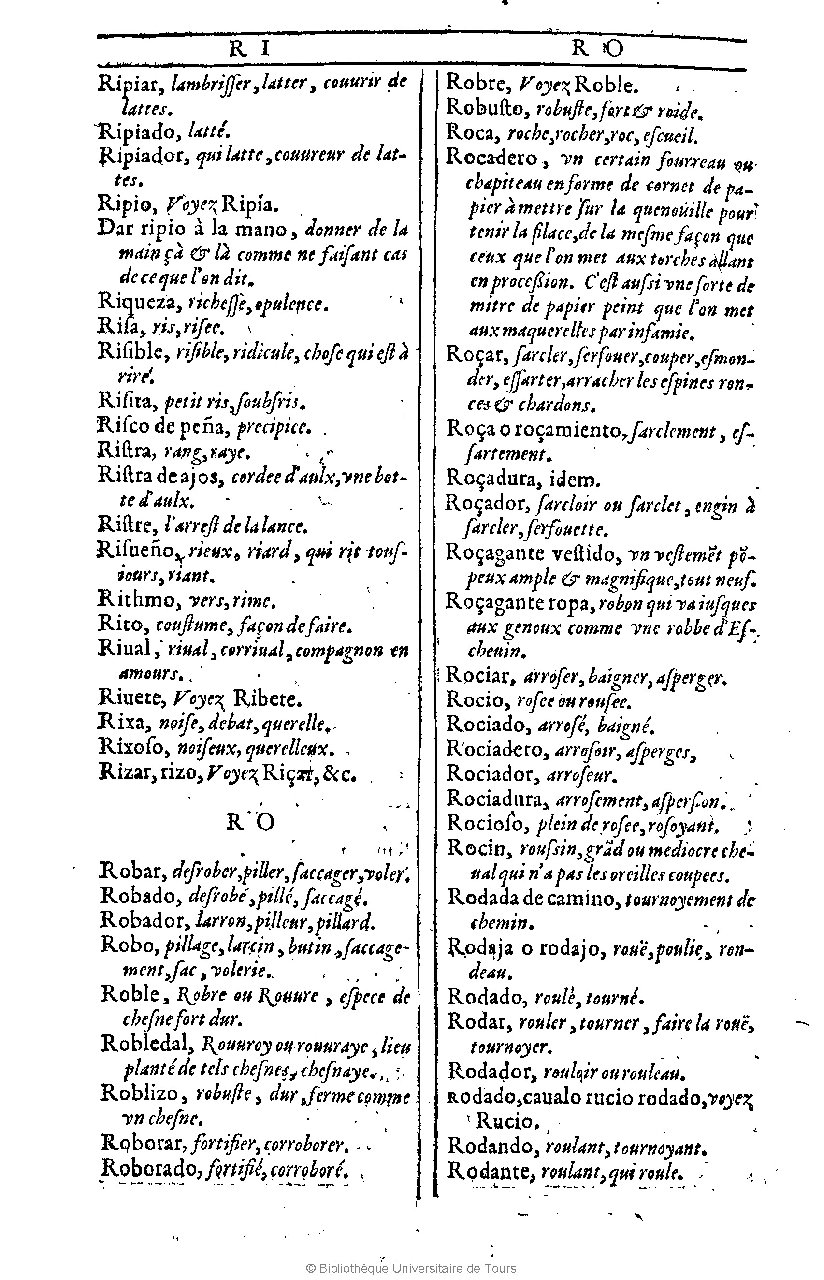 R I
Ripiar, lambriſſer, latter, couurir de
lattes.
Ripiado, latté.
Ripiador, qui latte, couureur de lat-
tes.
Ripio, Voyez Ripía.
Dar ripio à la mano, donner de la
main çà & là comme ne faiſant cas
de ce que l'on dit.
Riqueza, richeſſe, opulence.
Riſa, ris, riſee.
Riſible, riſible, ridicule, choſe qui eſt à
rire.
Riſita, petit ris, ſoubſris.
Riſco de peña, precipice.
Riſtra, rang, raye.
Riſtra de ajos, cordee d'aulx, vne bot-
te d'aulx.
Riſtre, l'arreſt de la lance.
Riſueño, rieux, riard, qui rit touſ-
iours, riant.
Rithmo, vers, rime.
Rito, couſtume, façon de faire.
Riual, riual, corriual, compagnon en
amours.
Riuete, Voyez Ribete.
Rixa, noiſe, debat, querelle.
Rixoſo, noiſeux, querelleux.
Rizar, rizo, Voyez Riçar, &c.
R O
Robar, deſrober, piller, ſaccager, voler.
Robado, deſrobé, pillé, ſaccagé.
Robador, larron, pilleur, pillard.
Robo, pillage, larcin, butin, ſaccage-
ment, ſac, volerie.
Roble, Robre ou Rouure, eſpece de
cheſne fort dur.
Robledal, Rouuroy ou rouuraye, lieu
planté de tels cheſnes, cheſnaye.
Roblizo, robuſte, dur, ferme comme
vn cheſne.
Roborar, fortifier, corroborer.
Roborado, fortifié, corroboré.
R O
Robre, Voyez Roble.
Robuſto, robuſte, fort & roide.
Roca, roche, rocher, roc, eſcueil.
Rocadero, vn certain fourreau ou
chapiteau en forme de cornet de pa-
pier à mettre ſur la quenoüille pour
tenir la filace, de la meſme façon que
ceux que l'on met aux torches allant
en proceſſion. C'eſt auſſi vne ſorte de
mitre de papier peint que l'on met
aux maquerelles par infamie.
Roçar, ſarcler, ſerfouer, couper, eſmon-
der, eſſarter, arracher les eſpines ron-
ces & chardons.
Roça o roçamiento, ſarclement, eſ-
ſartement.
Roçadura, idem.
Roçador, ſarcloir ou ſarclet, engin à
ſarcler, ſerfouette.
Roçagante veſtido, vn veſtemēt pō-
peux ample & magnifique, tout neuf.
Roçagante ropa, robon qui va iuſques
aux genoux comme vne robbe d'Eſ-
cheuin.
Rociar, arroſer, baigner, aſperger.
Rocio, roſee ou rouſee.
Rociado, arroſé, baigné.
Rociadero, arroſoir, aſperges,
Rociador, arroſeur.
Rociadura, arroſement, aſperſion.
Rocioſo, plein de roſee, roſoyant.
Rocin, rouſſin, grād ou mediocre che-
ual qui n'a pas les oreilles coupees.
Rodada de camino, tournoyement de
chemin.
Rodaja o rodajo, rouë, poulie, ron-
deau.
Rodado, roulé, tourné.
Rodar, rouler, tourner, faire la rouë,
tournoyer.
Rodador, rouloir ou rouleau.
Rodado, caualo rucio rodado, voyez
Rucio.
Rodando, roulant, tournoyant.
Rodante, roulant, qui roule.
© Bibliothèque Universitaire de Tours